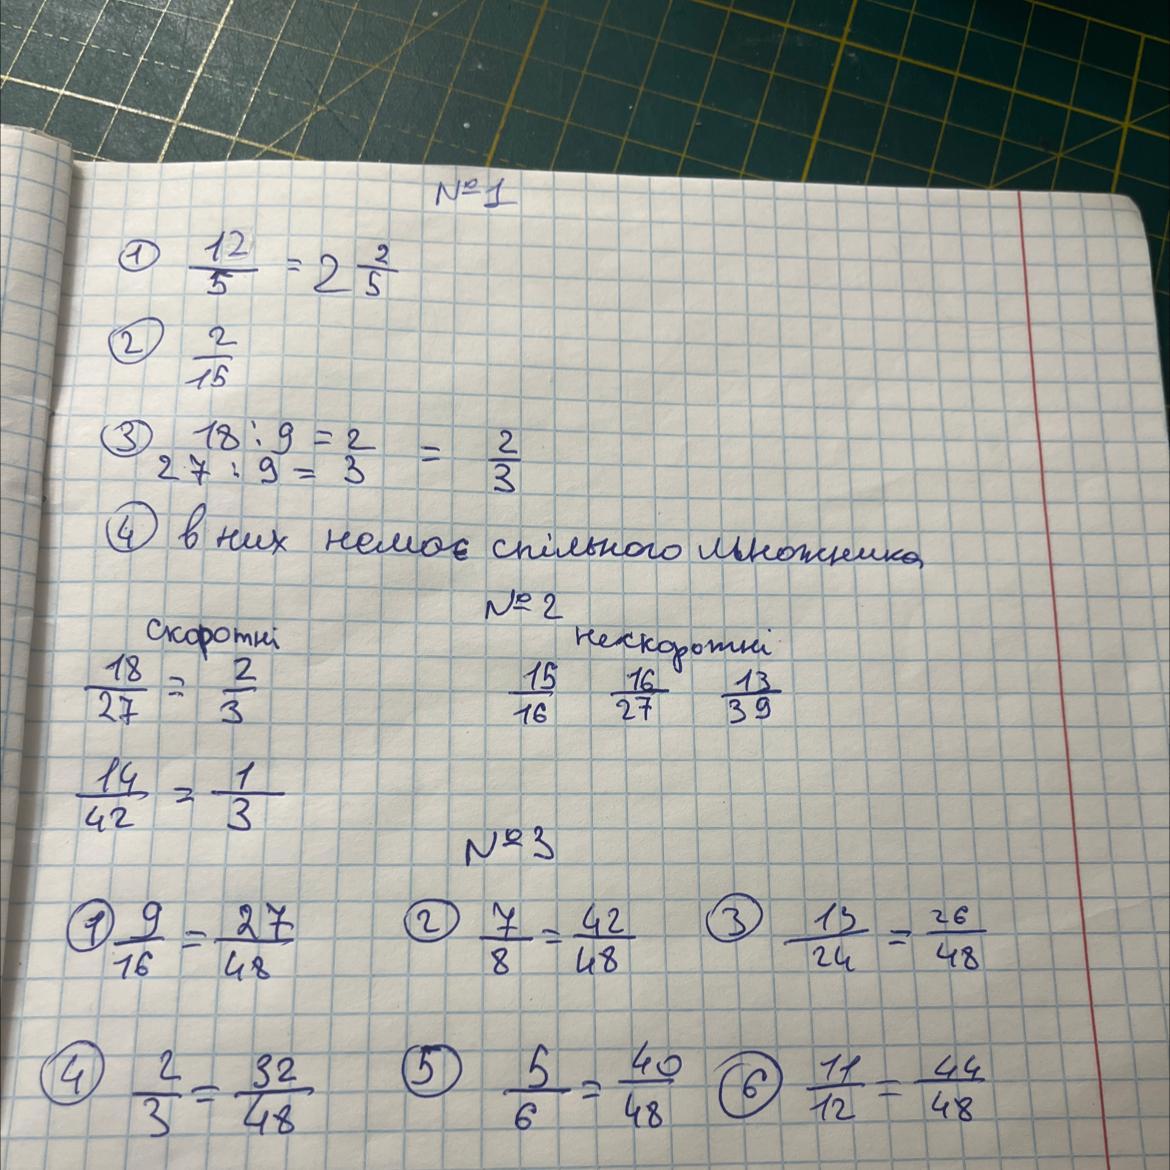 №1
① 12/5 = 2 2/5
② 2/15
③ 18 : 9 = 2
27 : 9 = 3 = 2/3
④ в них немає спільного множника
№2
скоротні нескоротні
18/27 = 2/3 15/16 16/27 13/39
14/42 = 1/3
№3
① 9/16 = 27/48 ② 7/8 = 42/48 ③ 13/24 = 26/48
④ 2/3 = 32/48 ⑤ 5/6 = 40/48 ⑥ 11/12 = 44/48